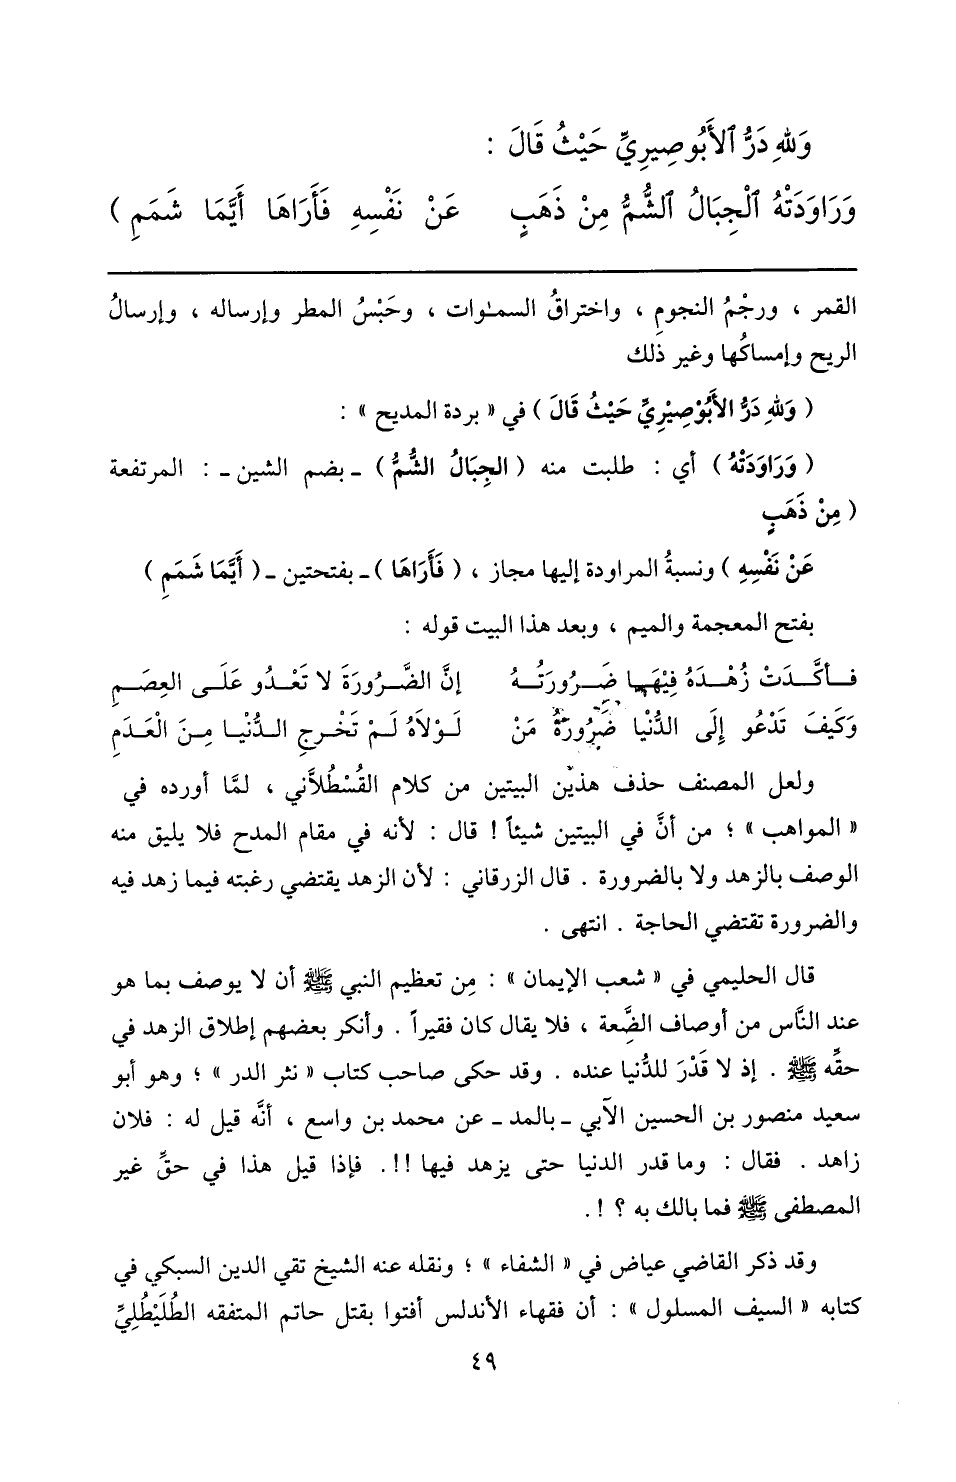 وَللهِ دَرُّ ٱلأَبُوصِيرِيِّ حَيْثُ قَالَ :
وَرَاوَدَتْهُ ٱلْجِبَالُ ٱلشُّمُّ مِنْ ذَهَبٍ عَنْ نَفْسِهِ فَأَرَاهَا أَيَّمَا شَمَمِ )
القمر ، ورجْمُ النجومِ ، واختراقُ السمـٰوات ، وحَبْسُ المطر وإرساله ، وإرسالُ
الريح وإمساكُها وغير ذلك
( وَللهِ دَرُّ الأَبُوْصِيْرِيِّ حَيْثُ قَالَ ) في « بردة المديح » :
( وَرَاوَدَتْهُ ) أي : طلبت منه ( الجِبَالُ الشُّمُّ ) ـ بضم الشين ـ : المرتفعة
( مِنْ ذَهَبٍ
عَنْ نَفْسِهِ ) ونسبةُ المراودة إليها مجاز ، ( فَأَرَاهَا ) ـ بفتحتين ـ ( أَيَّمَا شَمَمِ )
بفتح المعجمة والميم ، وبعد هذا البيت قوله :
فـأكَّـدَتْ زُهْـدَهُ فِيْهَـا ضَـرُورَتُـهُ إنَّ الضَّـرُورَةَ لا تَعْـدُو عَلَـى العِصَـمِ
وَكَيفَ تَدْعُو إِلَى الدُّنْيَا ضَرُورَةُ مَنْ لَـوْلاَهُ لَـمْ تَخْـرجِ الـدُّنْيَـا مِـنَ الْعَـدَمِ
ولعل المصنف حذف هذين البيتين من كلام القُسْطُلاَّني ، لمَّا أورده في
« المواهب » ؛ من أنَّ في البيتين شيئاً ! قال : لأنه في مقام المدح فلا يليق منه
الوصف بالزهد ولا بالضرورة . قال الزرقاني : لأن الزهد يقتضي رغبته فيما زهد فيه
والضرورة تقتضي الحاجة . انتهى .
قال الحليمي في « شعب الإيمان » : مِن تعظيم النبي ﷺ أن لا يوصف بما هو
عند النَّاس من أوصاف الضَّعة ، فلا يقال كان فقيراً . وأنكر بعضهم إطلاق الزهد في
حقِّه ﷺ . إذ لا قَدْرَ للدُّنيا عنده . وقد حكى صاحب كتاب « نثر الدر » ؛ وهو أبو
سعيد منصور بن الحسين الآبي ـ بالمد ـ عن محمد بن واسع ، أنَّه قيل له : فلان
زاهد . فقال : وما قدر الدنيا حتى يزهد فيها !!. فإذا قيل هذا في حقِّ غير
المصطفى ﷺ فما بالك به ؟ !.
وقد ذكر القاضي عياض في « الشفاء » ؛ ونقله عنه الشيخ تقي الدين السبكي في
كتابه « السيف المسلول » : أن فقهاء الأندلس أفتوا بقتل حاتم المتفقه الطُلَيْطُلِيِّ
٤٩